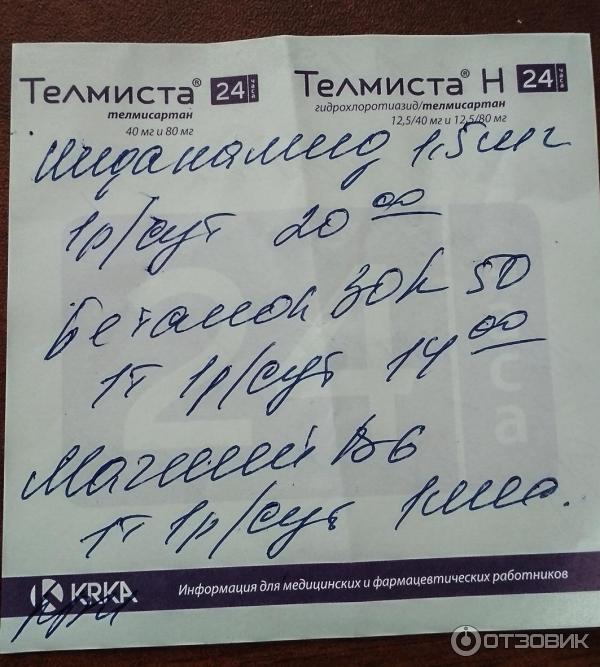 Телмиста® 24 часа
телмисартан
40 мг и 80 мг
Телмиста® Н 24 часа
гидрохлоротиазид/телмисартан
12,5/40 мг и 12,5/80 мг
Индапамид 1,5 мг
1р/сут 20 00
Беталок ЗОК 50
1т 1р/сут 14 00
Магний В6
1т 1р/сут 1 мес.
24 часа
KRKA
Информация для медицинских и фармацевтических работников
ОТЗОВИК